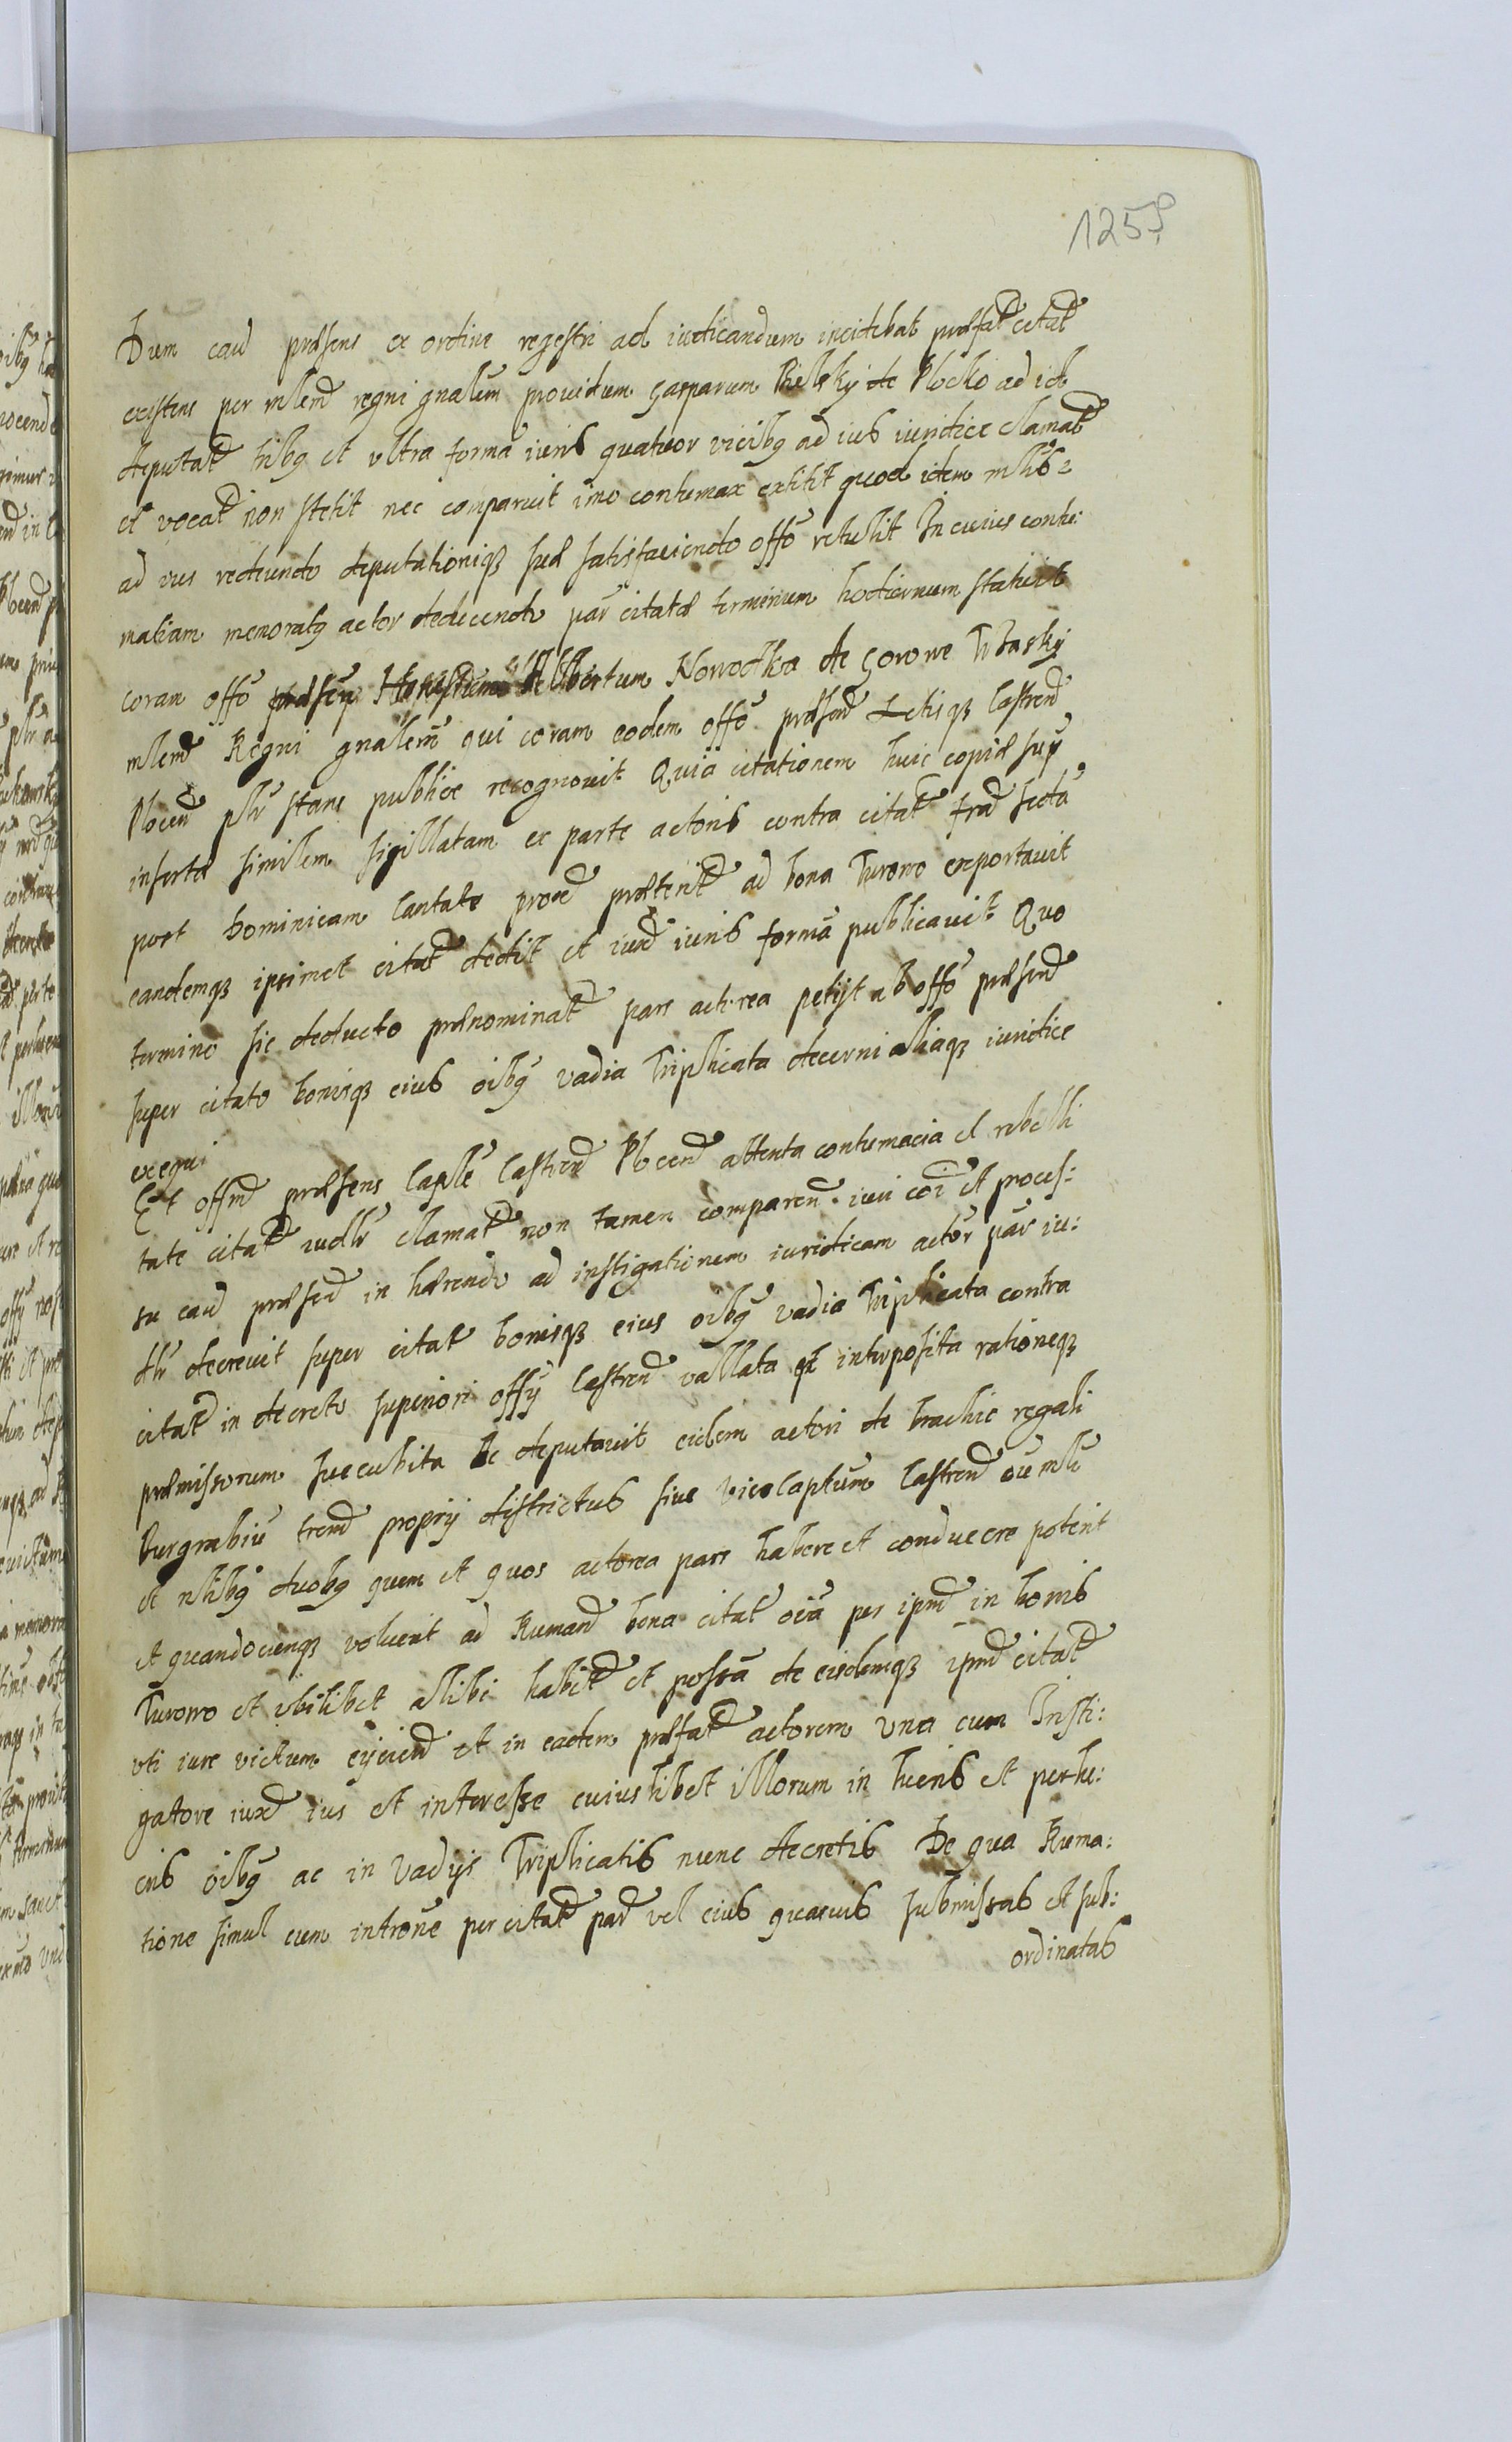 1259
Dum cau͂ præsens ex ordine regestri ad iudicandum incidebat præfat͂ citat͂
existens per mlem͂ regni gn̄alem prouidum Gasparum Bielsky de Plocko ad id
deputat͂ tribq et vltra formā iuris quatuor vicibq ad ius iuridice clamat͂
et vocat͂ non stetit nec comparuit imo contumax extitit quod idem mlis
ad ius redeundo deputationiq suæ satisfaciendo offō retulit In cuius contu:
matiam memoratq actor deducendo par citatæ terminum hodiernum statuit
coram offō Albertum Nowodka de Gorowe
mlem͂ Regni gn̄alem qui coram eodem offō præsen͂ Actisq Castren͂
Plocen͂ plr͂ stans publice recognouit Quia citationem huic copiæ sup͂
insertæ similem sigillatam ex parte actoris contra citat͂ fra͂ sectā
post Dominicam Cantate prox͂ præterit͂ ad bona Turowo exportauit
eandemq ipsimet citat͂ dedit et iux͂ iuris formā publicauit Quo
termino sic deducto prænominat͂ pars actorea petijt ab offō præsen͂
super citato bonisq eius oībq vadia Triplicata decerni aliaq iuridice
exequi
Et offm͂ præsens Caplē Castren͂ Plocen͂ attenta contumacia et rebelli
tate citat͂ iudlr͂ clamat͂ non tamen comparen͂ iuri cōi et proces:
su cau͂ præsen͂ in hærendo ad instigationem iuridicam actor͂ par iu:
dlr͂ decreuit super citat͂ bonisq eius oībq vadia Triplicata contra
citat͂ in decreto superiori offij Castren͂ vallata et interposita rationeq
præmissorum succubita Ac deputauit eidem actori de brachio regali
Burgrabiū tren͂ proprij districtus siue viceCaptūm Castren͂ cū mlī
et nlibq duobq quem et quos actorea pars habere et conducere poterit
et quandocunq voluerit ad Rumand͂ bona citat͂ oīa per ipm͂ in bonis
Turowo et vbilibet alibi habit͂ et possa͂ de eisdemq ipm͂ citat͂
vti iure victum eijciend͂ et in eadem præfat͂ actorem vna cum Insti:
gatore iux͂ ius et interesse cuiuslibet illorum in lucris et perlu:
cris oībq ac in Vadijs Triplicatis nunc decretis De qua Ruma:
tione simul cum introne per citat͂ par͂ vel eius quasuis submissas et sub:
ordinatas